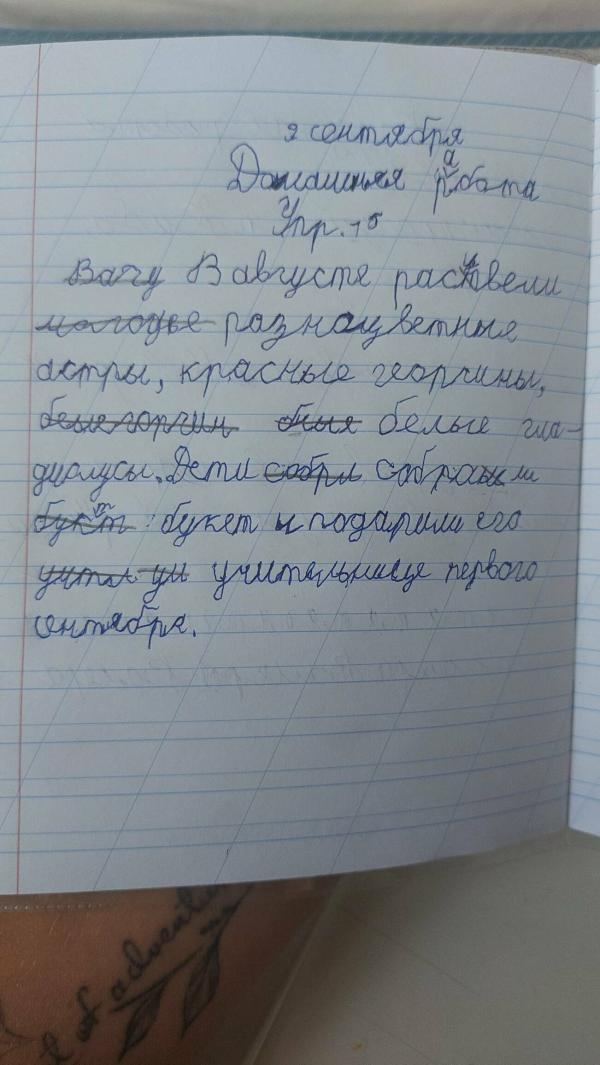 2 сентября
Домашняя работа
Упр. 15
Вачу В августе расцвели
молодые разноцветные
астры, красные георгины,
белые гла-
диолусы. Дети собрл собрали
букет букет и подарили его
учительнице первого
сентября.
of adventu